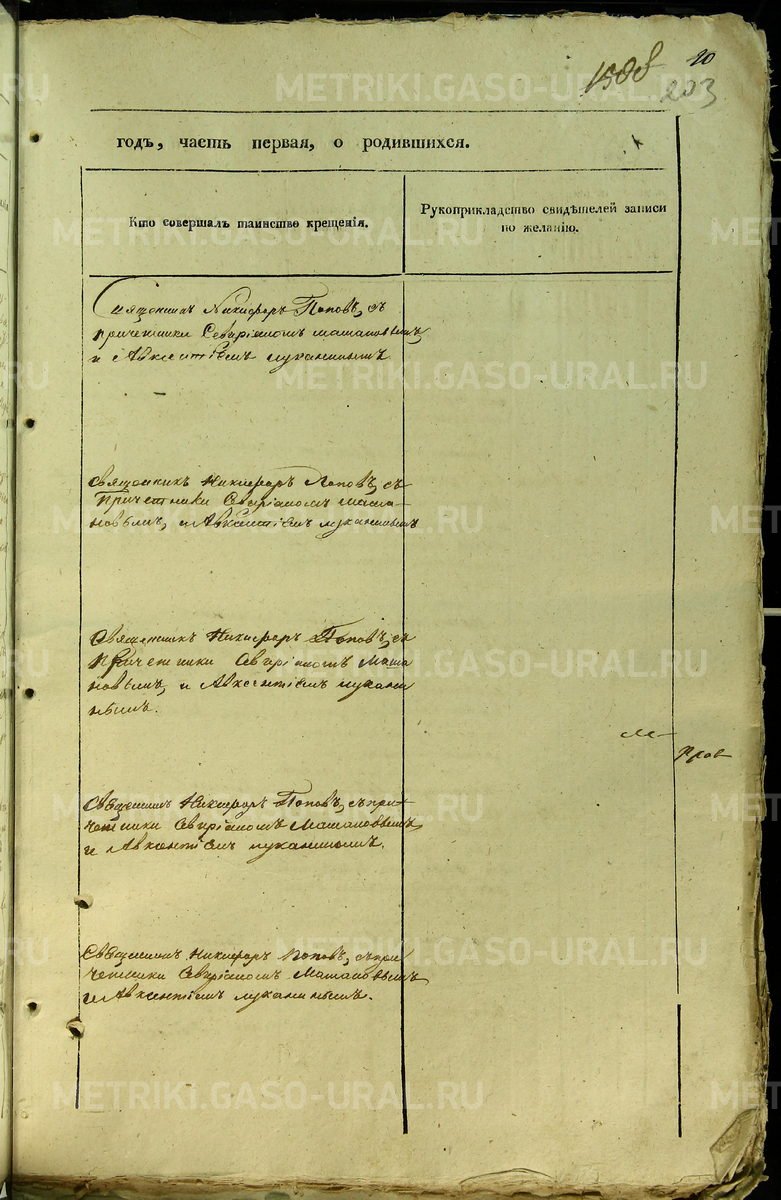 20
203
годъ, часть первая, о родившихся.
Кто совершалъ таинство крещенія.
Рукоприкладство свидѣтелей записи
по желанію.
Священникъ Никифоръ Поповъ, съ
причетники Севиріаномъ Машановымъ,
и Авксентіемъ Луканинымъ
Священникъ Никифоръ Поповъ, съ
Причетники Севиріаномъ Маша-
новымъ, и Авксентіемъ Луканинымъ
Священникъ Никифоръ Поповъ, съ
Причетники Севиріаномъ Маша
новымъ, и Авксентіемъ Лукани
нымъ.
Священникъ Никифоръ Поповъ, съ при-
четники Севиріаномъ Машановымъ,
и Авксентіемъ Луканинымъ.
Священникъ Никифоръ Поповъ, съ при
четники Севиріаномъ Машановымъ
и Авксентіемъ Луканинымъ.
METRIKI.GASO-URAL.RU